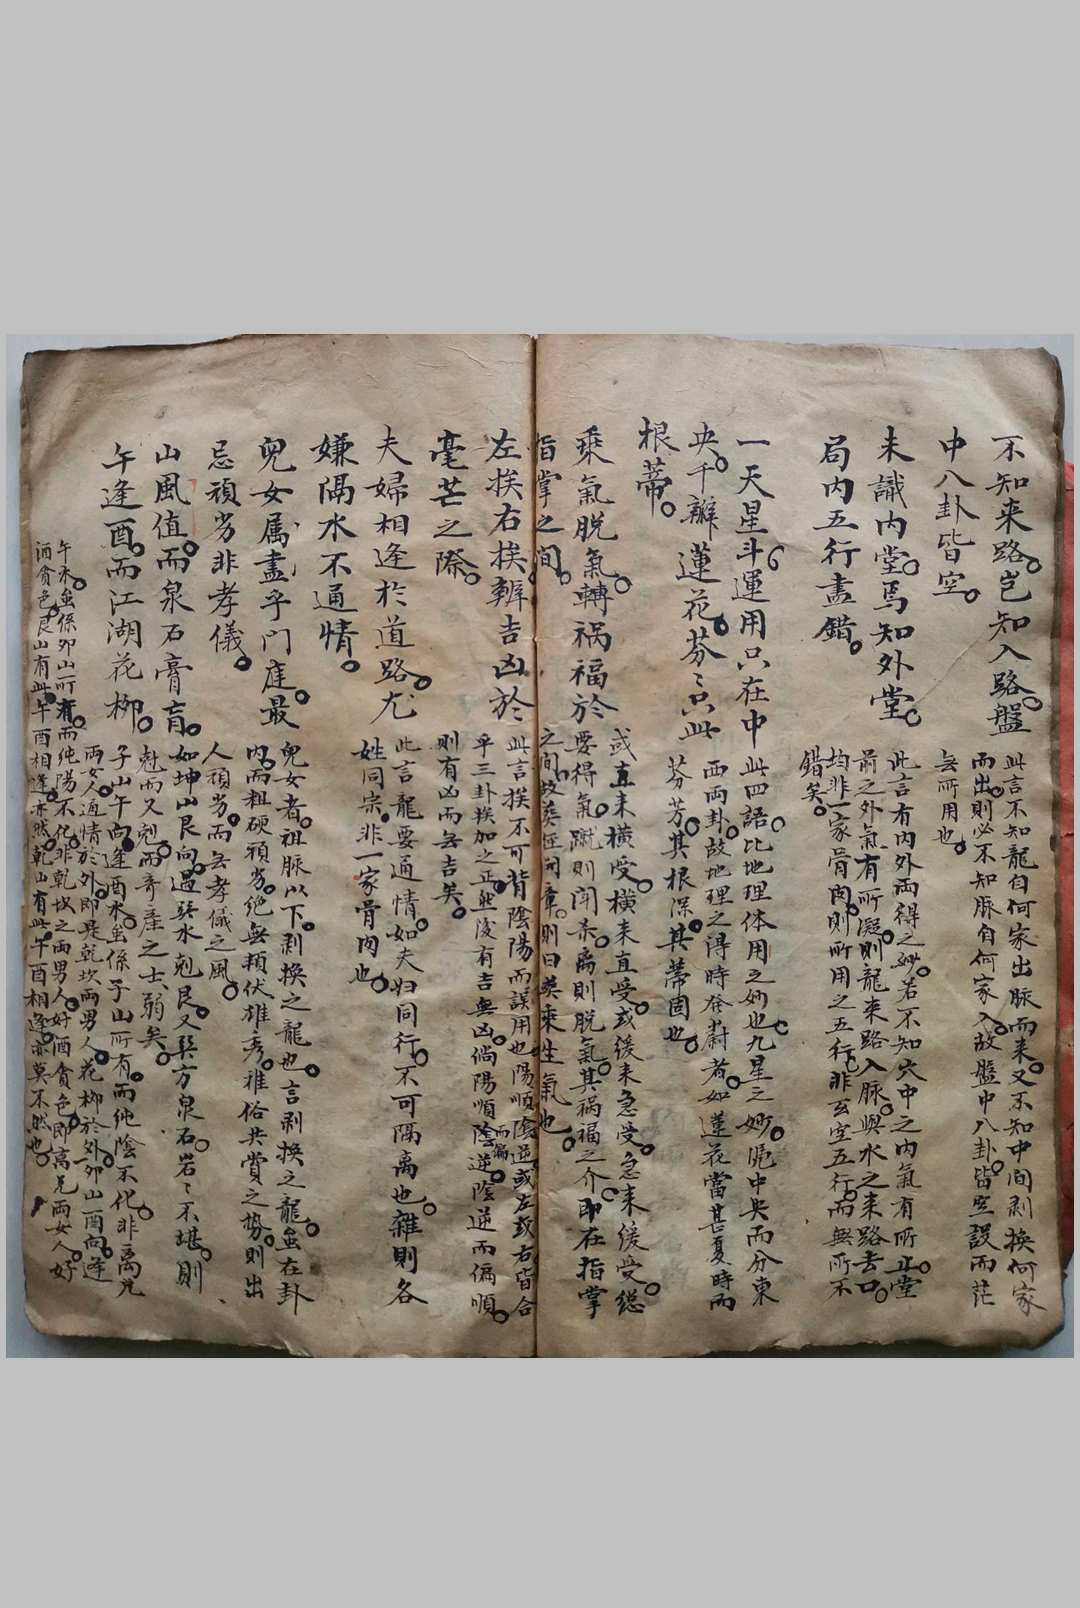 不知来路。岂知入路。盤
中八卦皆空。
此言不知龍自何家出脉而来。又不知中间剥换何家
而出。則必不知脉自何家入。故盤中八卦。皆空設而茫
無所用也。
未識内堂。焉知外堂。
局内五行盡錯。
此言有内外両得之妙。若不知穴中之内氣有所止。堂
前之外氣有所凝。則龍来路入脉。與水之来路去口。
均非一家骨肉。則所用之五行。非玄空五行。而無所不
錯矣。
一天星斗。運用只在中
央。千瓣蓮花。芬〻只此
根蒂。
此四語。比地理体用之妙也。九星之妙。中央而分東
西両卦。故地理之得時發蔚者。如蓮花當甚夏時而
芬芳。其根深。其蒂固也。
乘氣脱氣。轉禍福於
指掌之间。
或直来横受。横来直受。或缓来急受。急来缓受。縂
要得氣。蹴則闻杀。离則脱氣。其禍福之介。即在指掌
之间。故葬经则曰葬乘生氣也。
左挨右挨。辨吉凶於
毫芒之際。
此言挨不可背陰陽而誤用也。陽順陰逆。或左或右。皆合
乎三卦挨加之正。然後有吉無凶。倘陽順陰逆。陰逆而偏順。
而偏
則有凶而無吉矣。
夫婦相逢於道路。尤
嫌隔水不通情。
此言龍要通情。如夫妇同行。不可隔离也。雜則各
姓同宗。非一家骨肉也。
兒女属盡乎門庭。最
忌頑劣非孝儀。
兒女者。祖脉以下。剥换之龍也。言剥换之龍。虽在卦
内。而粗硬頑劣。絶無頼伏雄秀。雅俗共賞之勢。則出
人頑劣。而無孝儀之風。
山風值。而泉石膏肓。
如坤山艮向。過巽水尅艮。又巽方泉石。岩〻不堪。則
尅而又尅。而奇產之士。弱矣。
午逢酉。而江湖花柳。
子山午向。逢酉水。虽係子山所有。而純陰不化。非离兑
両女人通情於外。即是乾坎両男人。花柳於外。卯山酉向。逢
午水。虽係卯山所有。而纯陽不化。非乾坎之両男人。好酒貪色。即离兑両女人。好
酒貪色。艮山有此。午酉相逢。亦然。乾山有此。午酉相逢。亦莫不然也。